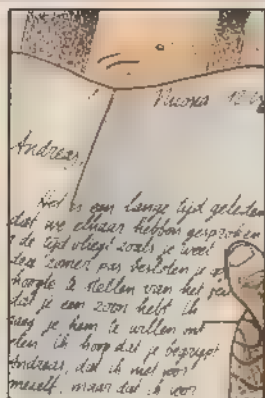 Nicosia
Andreas,
Het is een lange tijd geleden
dat we elkaar hebben gesproken
de tijd vliegt zoals je weet
zomer pas besloten je
hoogte te stellen van het
dat je een zoon hebt. Ik
je hem te willen
ik hoop dat je begrijpt
Andreas, dat ik niet voor
mezelf, maar dat ik voor